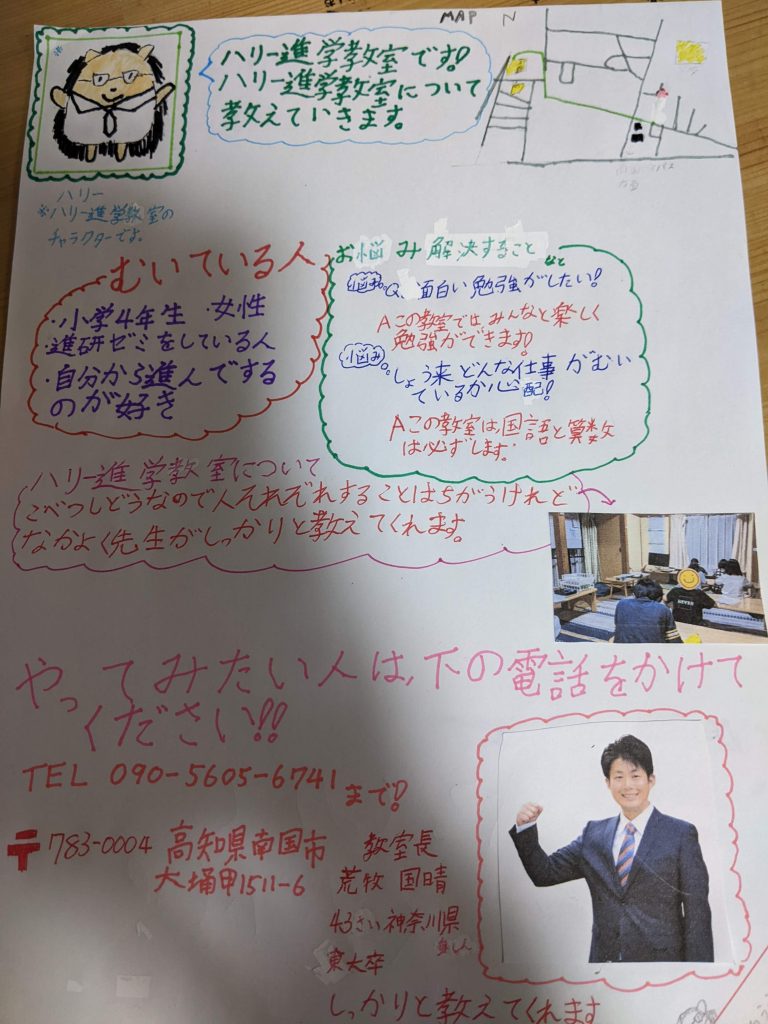 MAP N
ハリー進学教室です!
ハリー進学教室について
教えていきます。
ハリー
※ハリー進学教室の
キャラクターです。
むいている人
・小学4年生 ・女性
・進研ゼミをしている人
・自分から進んでする
のが好き
お悩み解決することなど
悩み Q.面白い勉強がしたい!
Aこの教室ではみんなと楽しく
勉強ができます!
悩み しょう来どんな仕事がむい
ているか心配!
Aこの教室は国語と算数
は必ずします。
ハリー進学教室について
こべつしどうなので人それぞれすることはちがうけれど
なかよく先生がしっかりと教えてくれます。
やってみたい人は、下の電話をかけて
ください!!
TEL 090-5605-6741まで!
〒783-0004 高知県南国市
大埇甲1511-6
教室長
荒牧 国晴
43さい神奈川県
東大卒
しっかりと教えてくれます